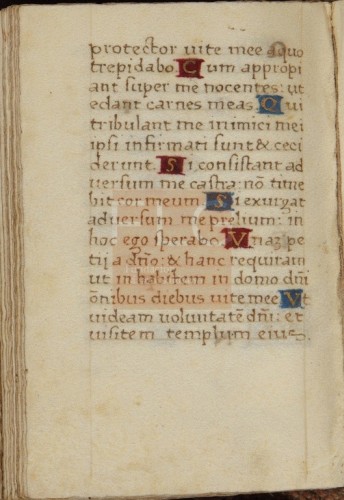 protector uite mee a quo
trepidabo. Cum appropi
ant super me nocentes: ut
edant carnes meas. Qui
tribulant me inimici mei
ipsi infirmati sunt & ceci
derunt. Si consistant ad
uersum me castra: nō time
bit cor meum. Si exurgat
aduersum me prelium: in
hoc ego sperabo. Unaz pe
tij a dño: & hanc requiram
ut in habitem in domo dñi
ōnibus diebus uite mee. Ut
uideam voluntatē dñi: et
uisitem templum eius.